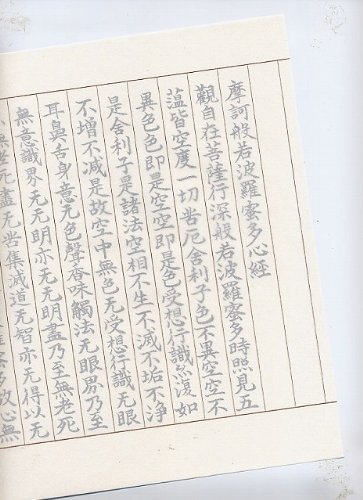 摩訶般若波羅蜜多心經
觀自在菩薩行深般若波羅蜜多時照見五
蘊皆空度一切苦厄舍利子色不異空空不
異色色即是空空即是色受想行識亦復如
是舍利子是諸法空相不生不滅不垢不淨
不增不減是故空中無色无受想行識无眼
耳鼻舌身意无色聲香味觸法无眼界乃至
無意識界无无明亦无无明盡乃至無老死
無老死盡无苦集滅道无智亦无得以无
多故心無